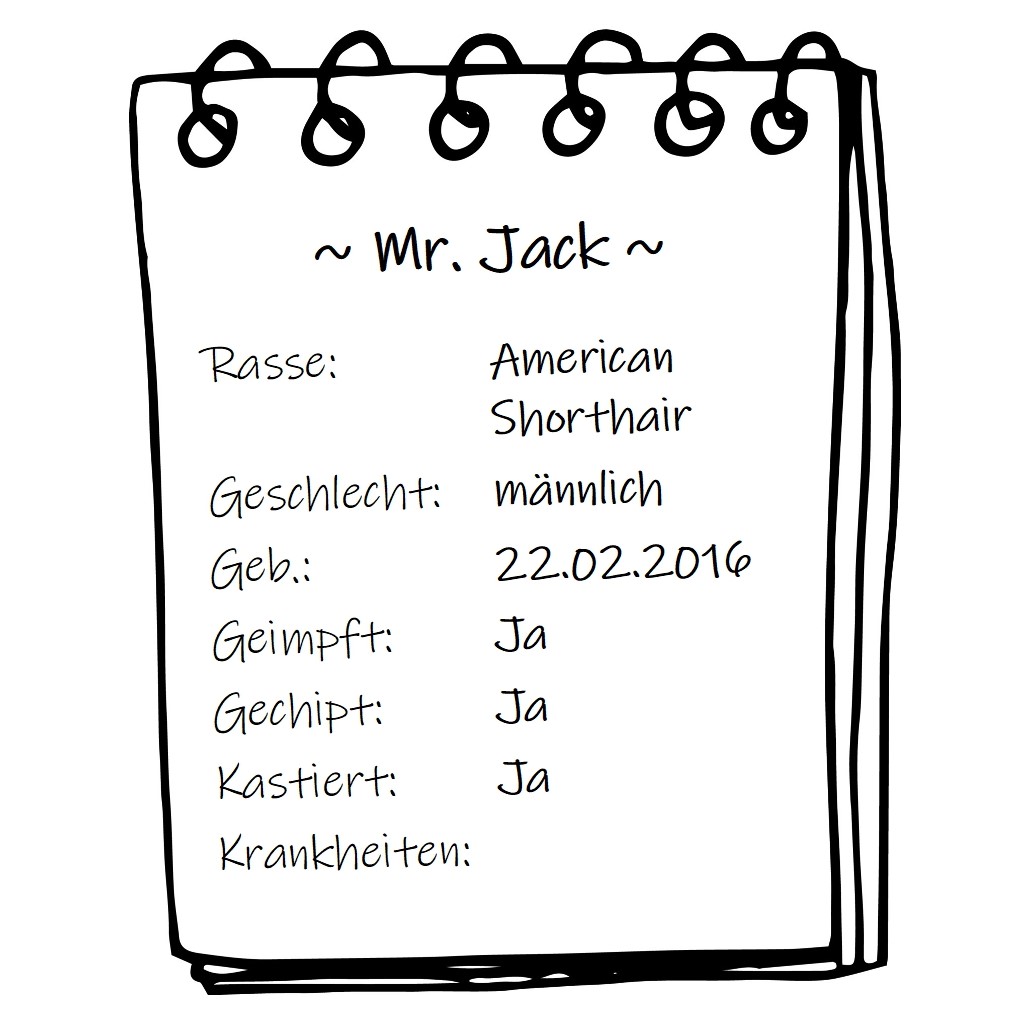 ~ Mr. Jack ~
Rasse: American
Shorthair
Geschlecht: männlich
Geb.: 22.02.2016
Geimpft: Ja
Gechipt: Ja
Kastiert: Ja
Krankheiten: